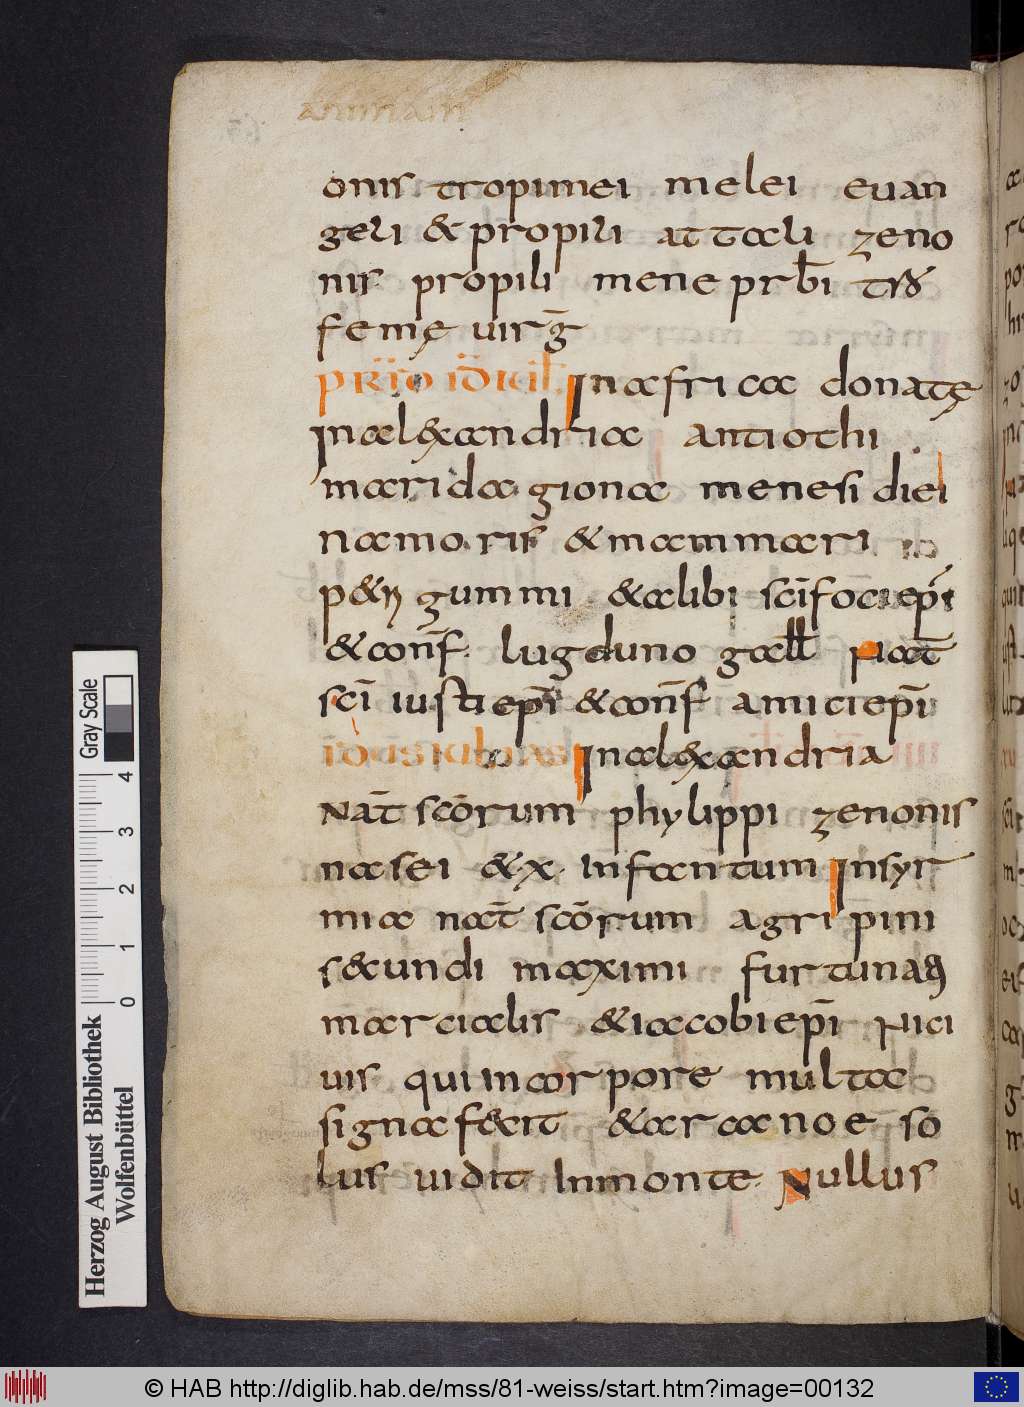 animam
onis tropimei melei euan
geli & propili attali zeno
nis propili mene prb̄i trſ
femę uirḡ
PRĪO ĪD IUL Inafrica donatę
Inalexandria antiothi
marida giona menesi diei
namoris & mammari
p&ri gummi & alibi scī foci ep̄i
& conf̄ lugduno gall̄ Nat̄
scī iusti ep̄i & conf̄ amici ep̄i
IDUS IULIAS Inalexandria
Nat̄ scōrum phylippi zenonis
nasei & x infantum Insyr
mia nat̄ scōrum agripini
secundi maximi furtunati
marcialis & iacobi ep̄i Nici
uis qui incorpore multa
signa fecit & arca noe so
lus uidit Inmonte Nullus
Gray Scale
0 1 2 3 4
Herzog August Bibliothek
Wolfenbüttel
© HAB http://diglib.hab.de/mss/81-weiss/start.htm?image=00132